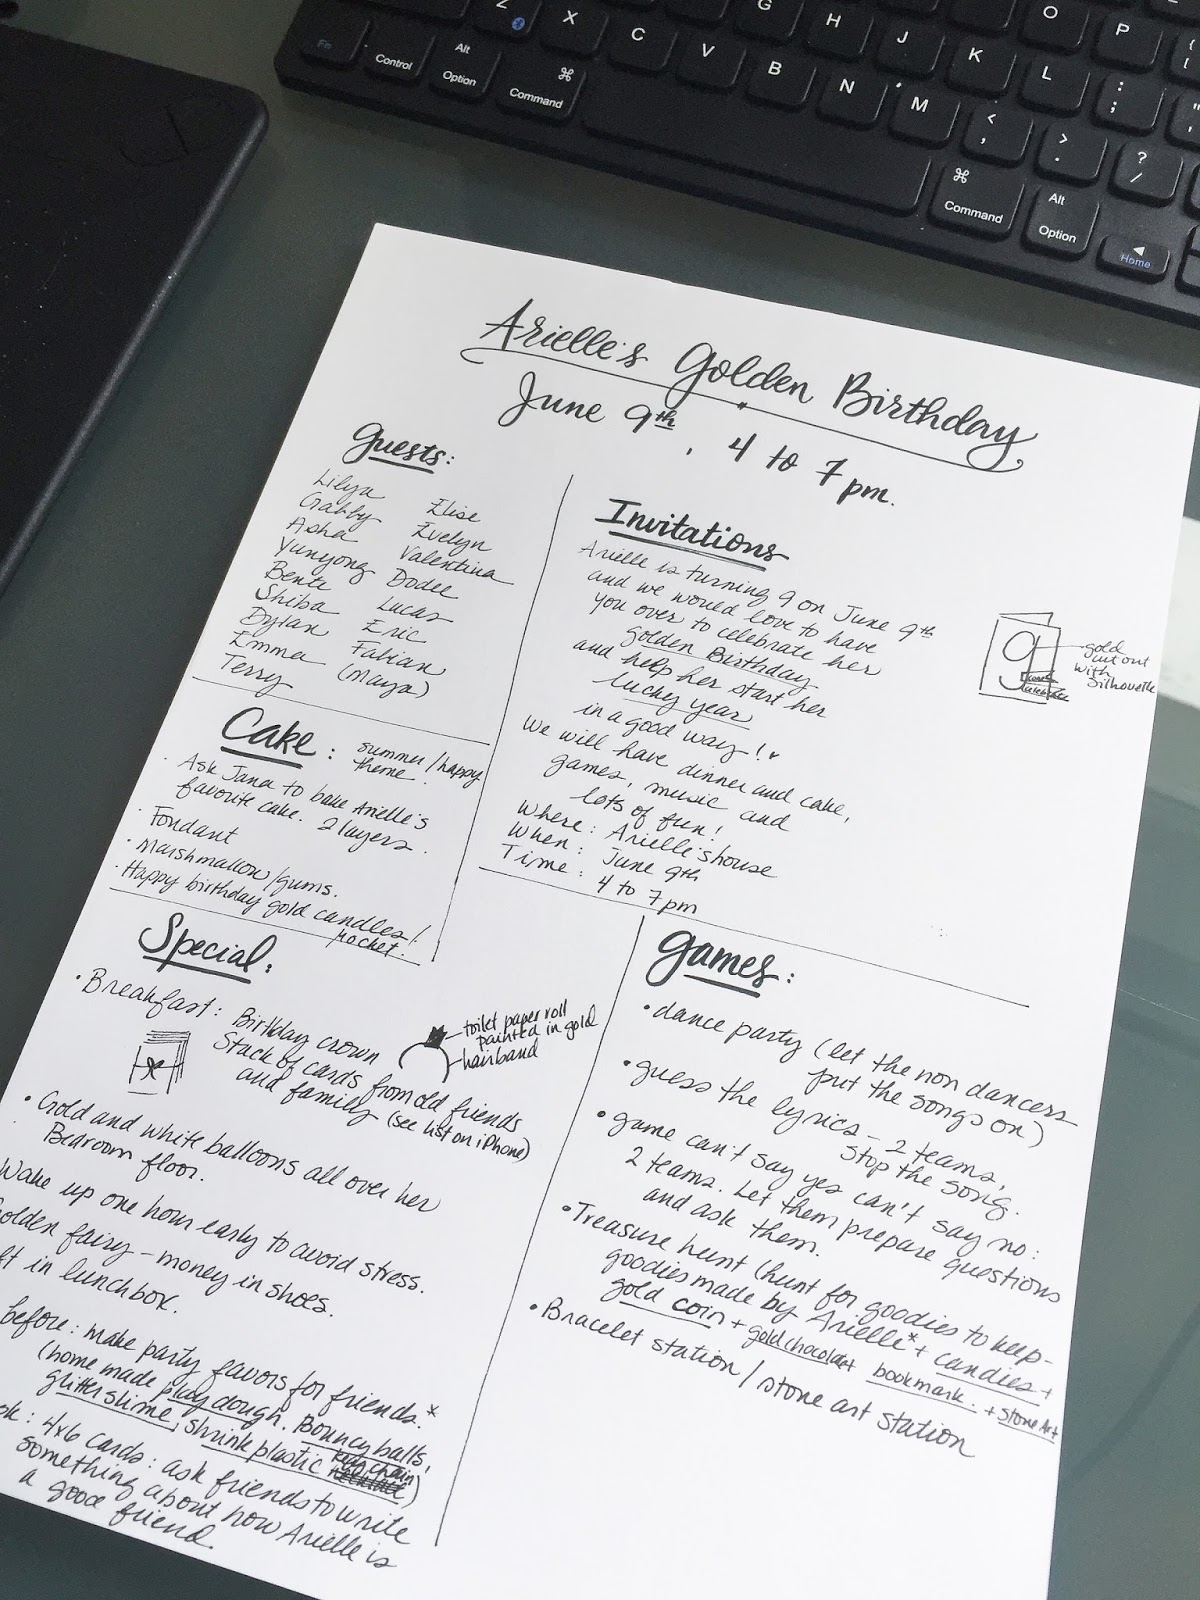 Z
X
C
V
B
N
M
G
H
J
K
L
O
P
{
[
:
;
"
'
<
,
>
.
?
/
Fn
Control
Alt
Option
⌘
Command
⌘
Command
Alt
Option
◀
Home
Arielle's Golden Birthday
June 9th, 4 to 7 pm.
Guests:
Lilya
Gabby
Asha
Yunyong
Bente
Shiba
Dylan
Emma
Terry
Elise
Evelyn
Valentina
Dodee
Lucas
Eric
Fabian
(Maya)
Invitations
Arielle is turning 9 on June 9th
and we would love to have
you over to celebrate her
golden Birthday
and help her start her
lucky year
in a good way!
We will have dinner and cake,
games, music and
lots of fun!
Where: Arielle's house
When: June 9th
Time: 4 to 7 pm
9
gold
cut out
with
Silhouette
Cake: summer/happy
theme.
· Ask Jana to bake Arielle's
favorite cake. 2 layers.
· Fondant
· Marshmallow/gums.
· Happy birthday gold candles/
rocket.
Special:
· Breakfast: Birthday crown
Stack of cards from old friends
and family (see list on iPhone)
toilet paper roll
painted in gold
hairband
· Gold and white balloons all over her
Bedroom floor.
Wake up one hour early to avoid stress.
olden fairy - money in shoes.
ft in lunchbox.
before: make party favors for friends.*
(home made play dough. Bouncy balls,
glitter slime, shrink plastic key chain)
ok: 4x6 cards: ask friends to write
something about how Arielle is
a good friend.
Games:
· dance party (let the non dancers
put the songs on)
· guess the lyrics - 2 teams,
stop the song.
· game can't say yes can't say no:
2 teams. Let them prepare questions
and ask them.
· Treasure hunt (hunt for goodies to keep -
goodies made by Arielle* + candies +
gold coin + gold chocolate + bookmark. + stone Art
· Bracelet station / stone art station